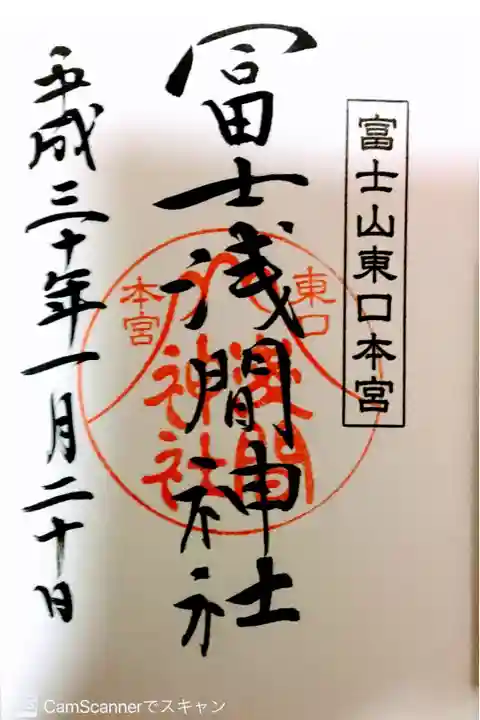 富士山東口本宮
冨士浅間神社
東口
本宮
浅間
神社
平成三十年一月二十日
CamScannerでスキャン